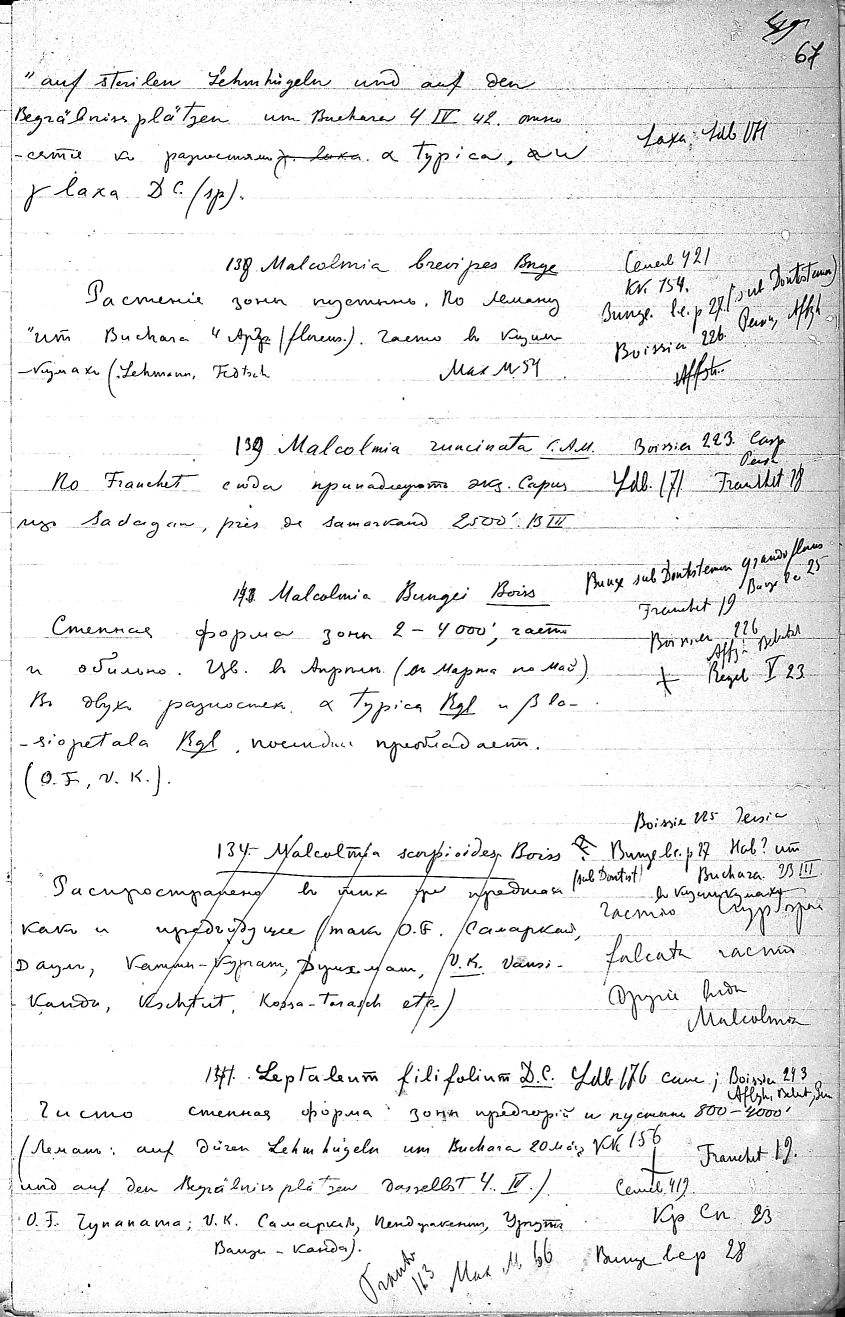 67
"auf sterilen Lehmhügeln und auf den
Begräbnissplätzen um Buchara 4 IV 42. отно
-сятся къ разностямъ γ. laxa. α typica, и
γ laxa D.C. (sp).
Laxa, Ldb VII
138 Malcolmia brevipes Bnge
Растеніе зоны пустынь. По Леману
"um Buchara 4 Apr (florens). Часто въ Кизил-
-Кумахъ (Lehmann, Fedtsch Max M 54
KK 154.
Bunge l.c. p 27. (sub Dontostemon)
Boissier 226. Persia, Affgh
Affgh.
139 Malcolmia runcinata C.A.M.
По Franchet сюда принадлежитъ экз. Capus
изъ Sadagan, près de Samarkand 2500'. 13 III
Boissier 223. Casp
Persia
Ldb. 171 Franchet 18
Malcolmia Bungei Boiss
Степная форма зоны 2 – 4000', часто
и обильно. Цв. въ Апрѣлѣ. (съ Марта по Май)
Въ двухъ разностях. α typica Rgl и β la-
-siopetala Rgl, послѣдняя преобладаетъ.
(O.F., V.K.).
Bunge sub Dontostemon grandiflorus
Franchet 19 Bunge l.c. 25
Boissier 226
Regel V 23
134. Malcolmia scorpioides Boiss
Распространено въ тѣхъ же предѣлахъ
какъ и предъидущее (такъ O.F. Самаркандъ,
Даулъ, Катты-Курган, V.K. Vansi-
Kanda, Kschtut, Kossa-Tarasch etc.)
Boissier 225 Persia
Bunge l.c. p 27 Hab? um
(sub Dontost) Buchara. 23 III
въ Кизилкумахъ
falcata часто
Другіе виды
Malcolmia
141. Leptaleum filifolium D.C. Ldb 176 cauc; Boissier 243
Чисто степная форма зоны предгорій и пустыни 800–4000'
(Леманъ: auf dürren Lehmhügeln um Buchara 20 März KK 156
und auf den Begräbnissplätzen dasselbst 4. IV.)
Franchet 19.
O.F. Чупаната; V.K. Самаркандъ, Пенджакентъ, Ургутъ
Ванзи-Канда).
Кр Сп 23
Max M 66 Bunge l.c. p 28